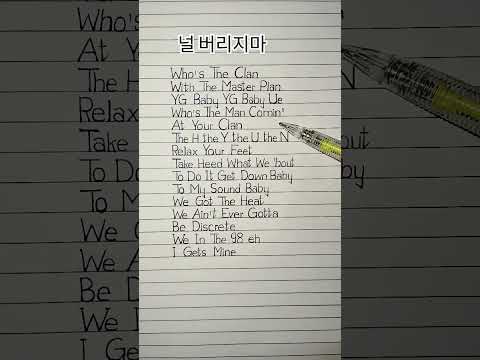 널 버리지마
Who's The Clan
With The Master Plan
YG Baby YG Baby Ue
Who's The Man Comin'
At Your Clan
The H the Y the U the N
Relax Your Feet
Take Heed What We 'bout
To Do It Get Down Baby
To My Sound Baby
We Got The Heat
We Ain't Ever Gotta
Be Discrete
We In The 98 eh
I Gets Mine